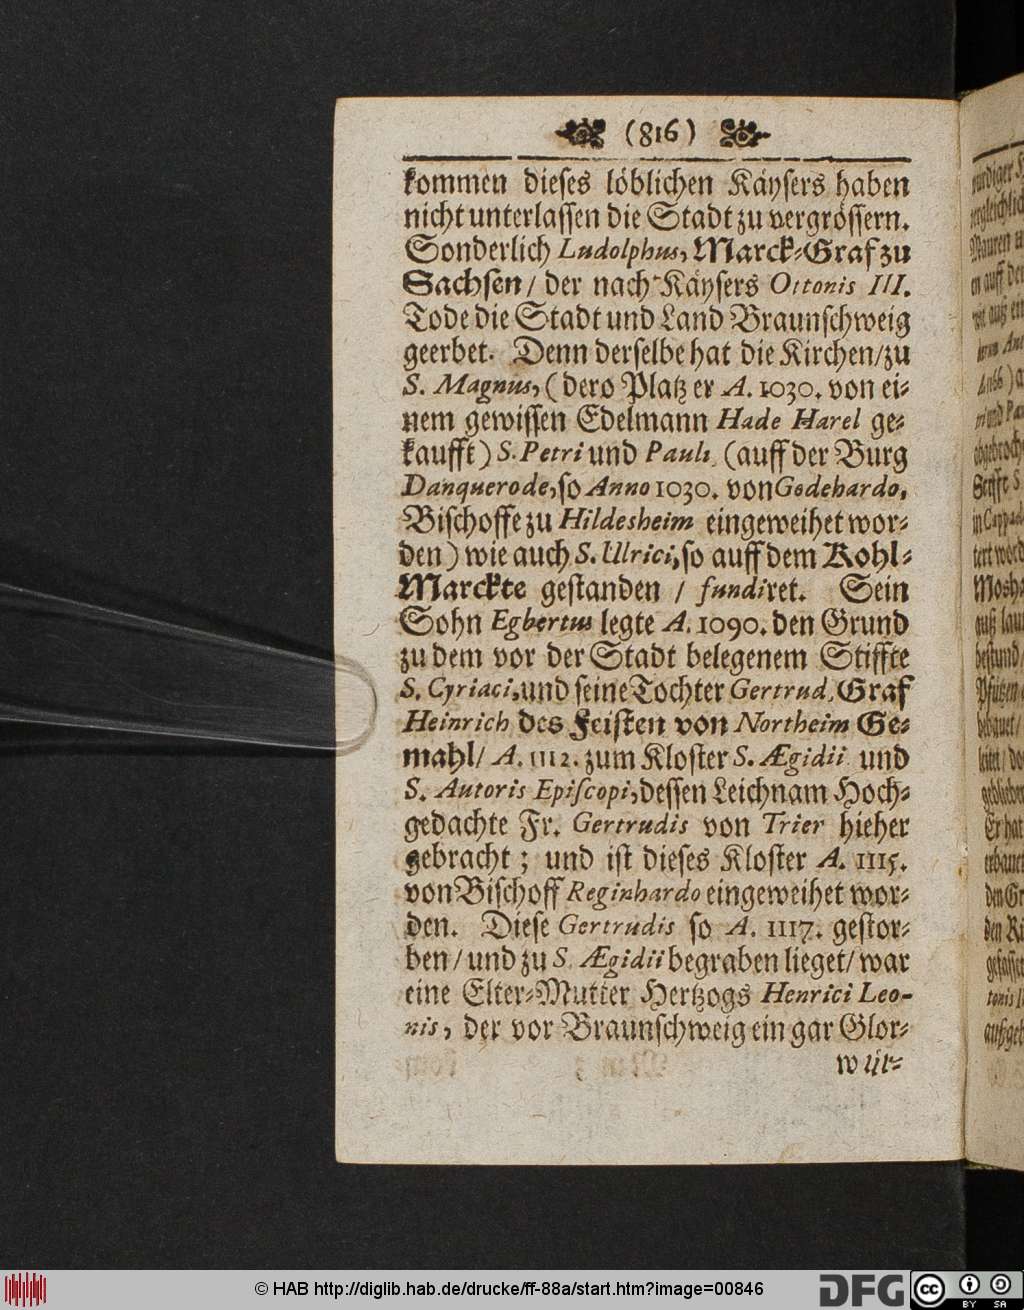 (816)
kommen dieses löblichen Käysers haben
nicht unterlassen die Stadt zu vergrössern.
Sonderlich Ludolphus, Marck-Graf zu
Sachsen / der nach Käysers Ottonis III.
Tode die Stadt und Land Braunschweig
geerbet. Denn derselbe hat die Kirchen/zu
S. Magnus, (dero Platz er A. 1030. von ei-
nem gewissen Edelmann Hade Harel ge-
kaufft) S. Petri und Pauli (auff der Burg
Danquerode, so Anno 1030. von Godehardo,
Bischoffe zu Hildesheim eingeweihet wor-
den) wie auch S. Ulrici, so auff dem Kohl-
Marckte gestanden / fundiret. Sein
Sohn Egbertus legte A. 1090. den Grund
zu dem vor der Stadt belegenem Stiffte
S. Cyriaci, und seine Tochter Gertrud, Graf
Heinrich des Feisten von Northeim Ge-
mahl/ A. 1112. zum Kloster S. Ægidii und
S. Autoris Episcopi, dessen Leichnam Hoch-
gedachte Fr. Gertrudis von Trier hieher
gebracht; und ist dieses Kloster A. 1115.
von Bischoff Reginhardo eingeweihet wor-
den. Diese Gertrudis so A. 1117. gestor-
ben / und zu S. Ægidii begraben lieget/ war
eine Elter-Mutter Hertzogs Henrici Leo-
nis, der vor Braunschweig ein gar Glor-
wür-
© HAB http://diglib.hab.de/drucke/ff-88a/start.htm?image=00846
DFG
cc BY SA